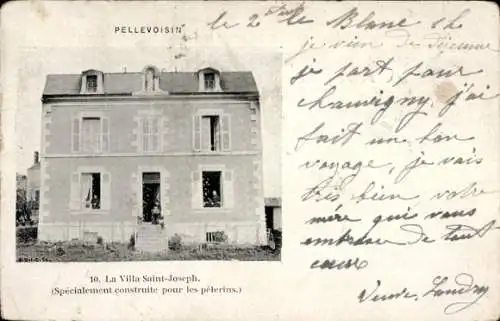 PELLEVOISIN
le 2 7bre le Blanc 2h
je vien de déjeuner
je part pour
chauvigny j'ai
fait un bon
voyage, je vais
très bien, votre
mère qui vous
embrasse de tout
cœur
Veuve Landry
10. La Villa Saint-Joseph.
(Spécialement construite pour les pèlerins.)